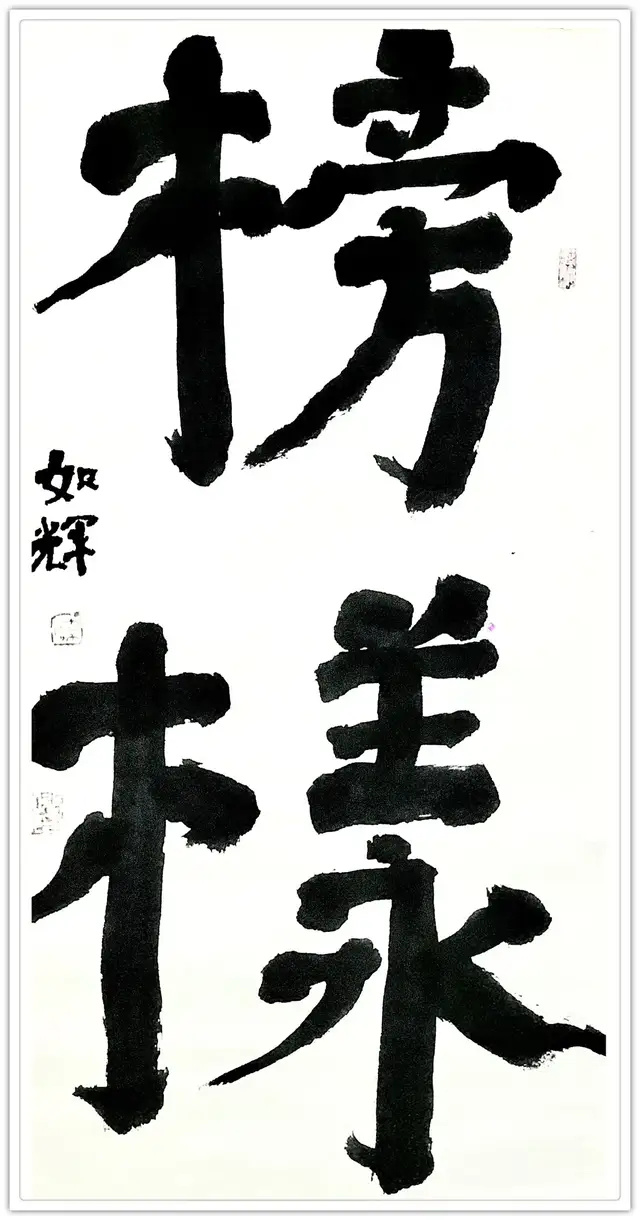 榜
樣
如輝